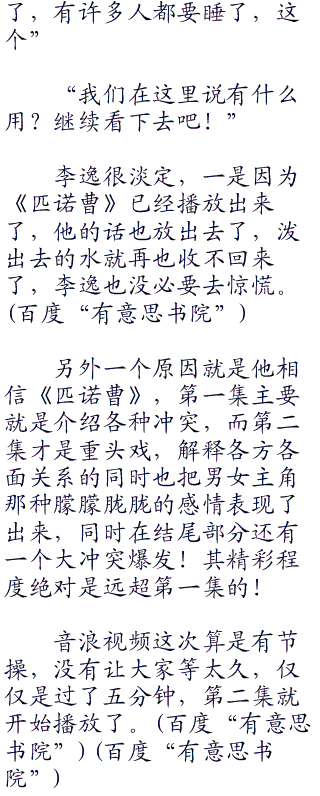 了，有许多人都要睡了，这
个”
“我们在这里说有什么
用？继续看下去吧！”
李逸很淡定，一是因为
《匹诺曹》已经播放出来
了，他的话也放出去了，泼
出去的水就再也收不回来
了，李逸也没必要去惊慌。
(百度“有意思书院”)
另外一个原因就是他相
信《匹诺曹》，第一集主要
就是介绍各种冲突，而第二
集才是重头戏，解释各方各
面关系的同时也把男女主角
那种朦朦胧胧的感情表现了
出来，同时在结尾部分还有
一个大冲突爆发！其精彩程
度绝对是远超第一集的！
音浪视频这次算是有节
操，没有让大家等太久，仅
仅是过了五分钟，第二集就
开始播放了。(百度“有意思
书院”)(百度“有意思书
院”)